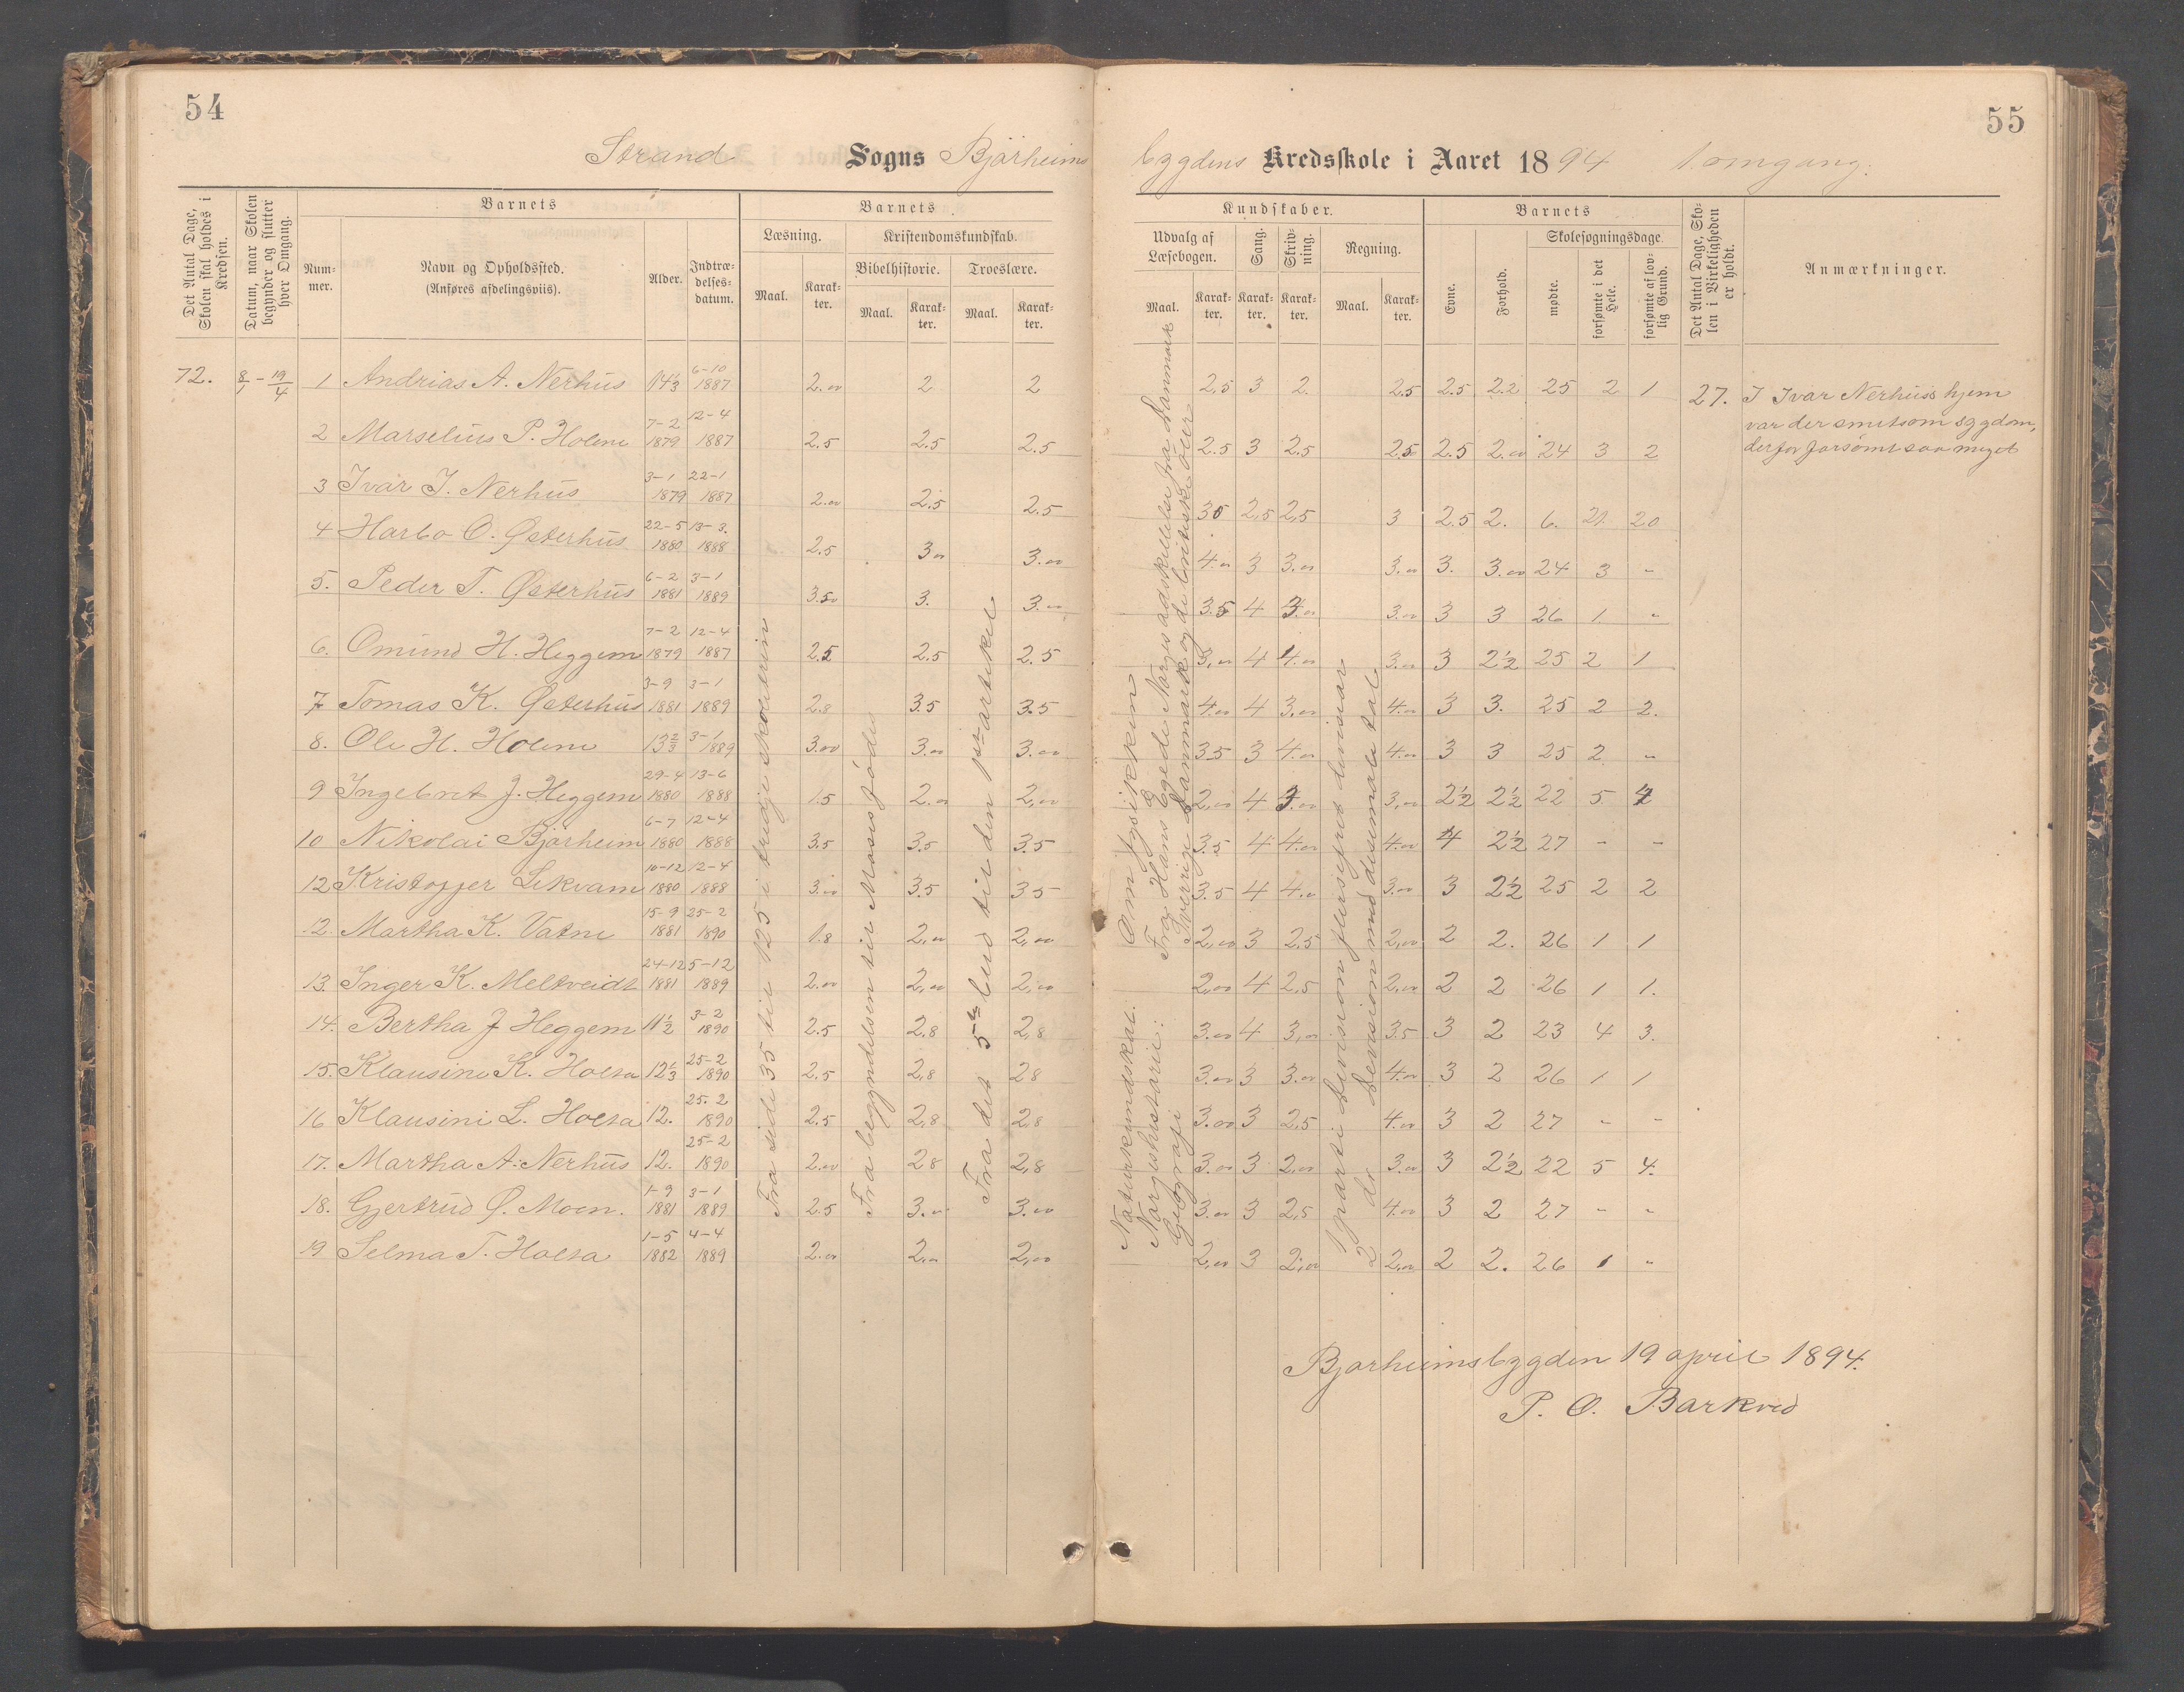 54
55
Strand Sogns Bjørheims bygdens Kredsskole i Aaret 1894 1. omgang.
Det Antal Dage, Skolen skal holdes i Kredsen.
Datum, naar Skolen begynder og slutter hver Omgang.
Barnets
Nummer.
Navn og Opholdssted.
(Anføres afdelingsviis).
Alder.
Indtrædelsesdatum.
Barnets
Læsning.
Maal.
Karakter.
Kristendomskundskab.
Bibelhistorie.
Maal.
Karakter.
Troeslære.
Maal.
Karakter.
Kundskaber.
Udvalg af Læsebogen.
Maal.
Karakter.
Sang.
Karakter.
Skrivning.
Karakter.
Regning.
Maal.
Karakter.
Barnets
Evne.
Forhold.
Skolesøgningsdage.
mødte.
forsømte i det Hele.
forsømte af lovlig Grund.
Det Antal Dage, Skolen i Virkeligheden er holdt.
Anmærkninger.
72. 8/1 - 19/4 1 Andrias A. Nerhüs 14 1/3 6-10 1887 2.00 2 2 2,5 3 2. 2.5 2.5 2.2 25 2 1 27.
2 Marselius P. Holene 7-2 1879 12-4 1887 2.5 2.5 2.5 2.5 3 2.5 2.5 2.5 2.00 24 3 2
3 Ivar I. Nerhüs 3-1 1879 22-1 1887 2.00 2.5 2.5 35 2,5 2,5 3 2.5 2. 6. 21. 20
4 Harbo O. Østerhüs 22-5 1880 13-3. 1888 2.5 3.00 3.00 4.00 3 3.00 3.00 3. 3.00 24 3 -
5. Peder T. Østerhüs 6-2 1881 3-1 1889 3.50 3. 3.00 3.5 4 3.00 3.00 3 3 26 1 -
6. Omünd H. Heggem 7-2 1879 12-4 1887 2.5 2.5 2.5 3,00 4 4.00 3.00 3 2 1/2 25 2 1
7 Tomas K. Østerhüs 3-9 1881 3-1 1889 2.8 3.5 3.5 4.00 4 3.00 4.00 3 3. 25 2 2.
8. Ole H. Holene 13 2/3 3-1 1889 3.00 3.00 3.00 3.5 3 4.00 4.00 3 3 25 2 -
9 Ingebret J. Heggem 29-4 1880 13-6 1888 1.5 2.00 2,00 2,00 4 3.00 3,00 2 1/2 2 1/2 22 5 4
10 Nikolai Bjørheim 6-7 1880 12-4 1888 3.5 3.5 3.5 3.5 4 4.00 4.00 4 2 1/2 27 - -
12 Kristoffer Lekvam 10-12 1880 12-4 1888 3.00 3.5 35 3.5 4 4.00 3.00 3 2 1/2 25 2 2
12 Martha K. Vatne 15-9 1881 25-2 1890 1.8 2,00 2,00 2,00 3 2.5 2,00 2 2. 26 1 1
13. Inger K. Meltveidt 24-12 1881 5-12 1889 2.00 2,00 2,00 2,00 4 2,5 2,00 2 2 26 1 1.
14. Bertha J Heggem 11 1/2 3-2 1890 2.5 2.8 2,8 3.00 4 3,00 3.5 3 2 23 4 3.
15. Klausine K. Holta 12 1/3 25-2 1890 2,5 2,8 28 3.00 3 3.00 4.00 3 2 26 1 1
16 Klausini L. Holta 12. 25.2 1890 2.5 2,8 2,8 3.00 3 2,5 4.00 3 2 27 - -
17. Martha A. Nerhüs 12. 25-2 1890 2.00 28 2,8 3.00 3 2,00 3.00 3 2 1/2 22 5 4.
18. Gjertrüd Ø. Moen. 1-9 1881 3-1 1889 2.5 3.00 3.00 3.00 3 2,5 4.00 3 2 27 - -
19 Selma T. Holta 1-5 1882 4-4 1889 2.00 2,00 2,00 2,00 3 2,00 2,00 2 2. 26 1 -
I Ivar Nerhüss hjem
var der smitsom sygdom,
derfor forsømt saa meget
Fra side 35 til 125 i tredje skoletrin
Fra begyndelsen til Moses føde
Fra det 5te bud til den 1ste artikel
Naturkundskab: Om fysikken
Norgeshistorie: Fra Hans Egede Norges adskillelse fra Danmark
Geografi Sverrige Danmark og de britiske öer
1 parti Division flersifret divisior
2 do Devision med desimale tal
Bjørheimsbygden 19 april 1894.
P. O. Barkved